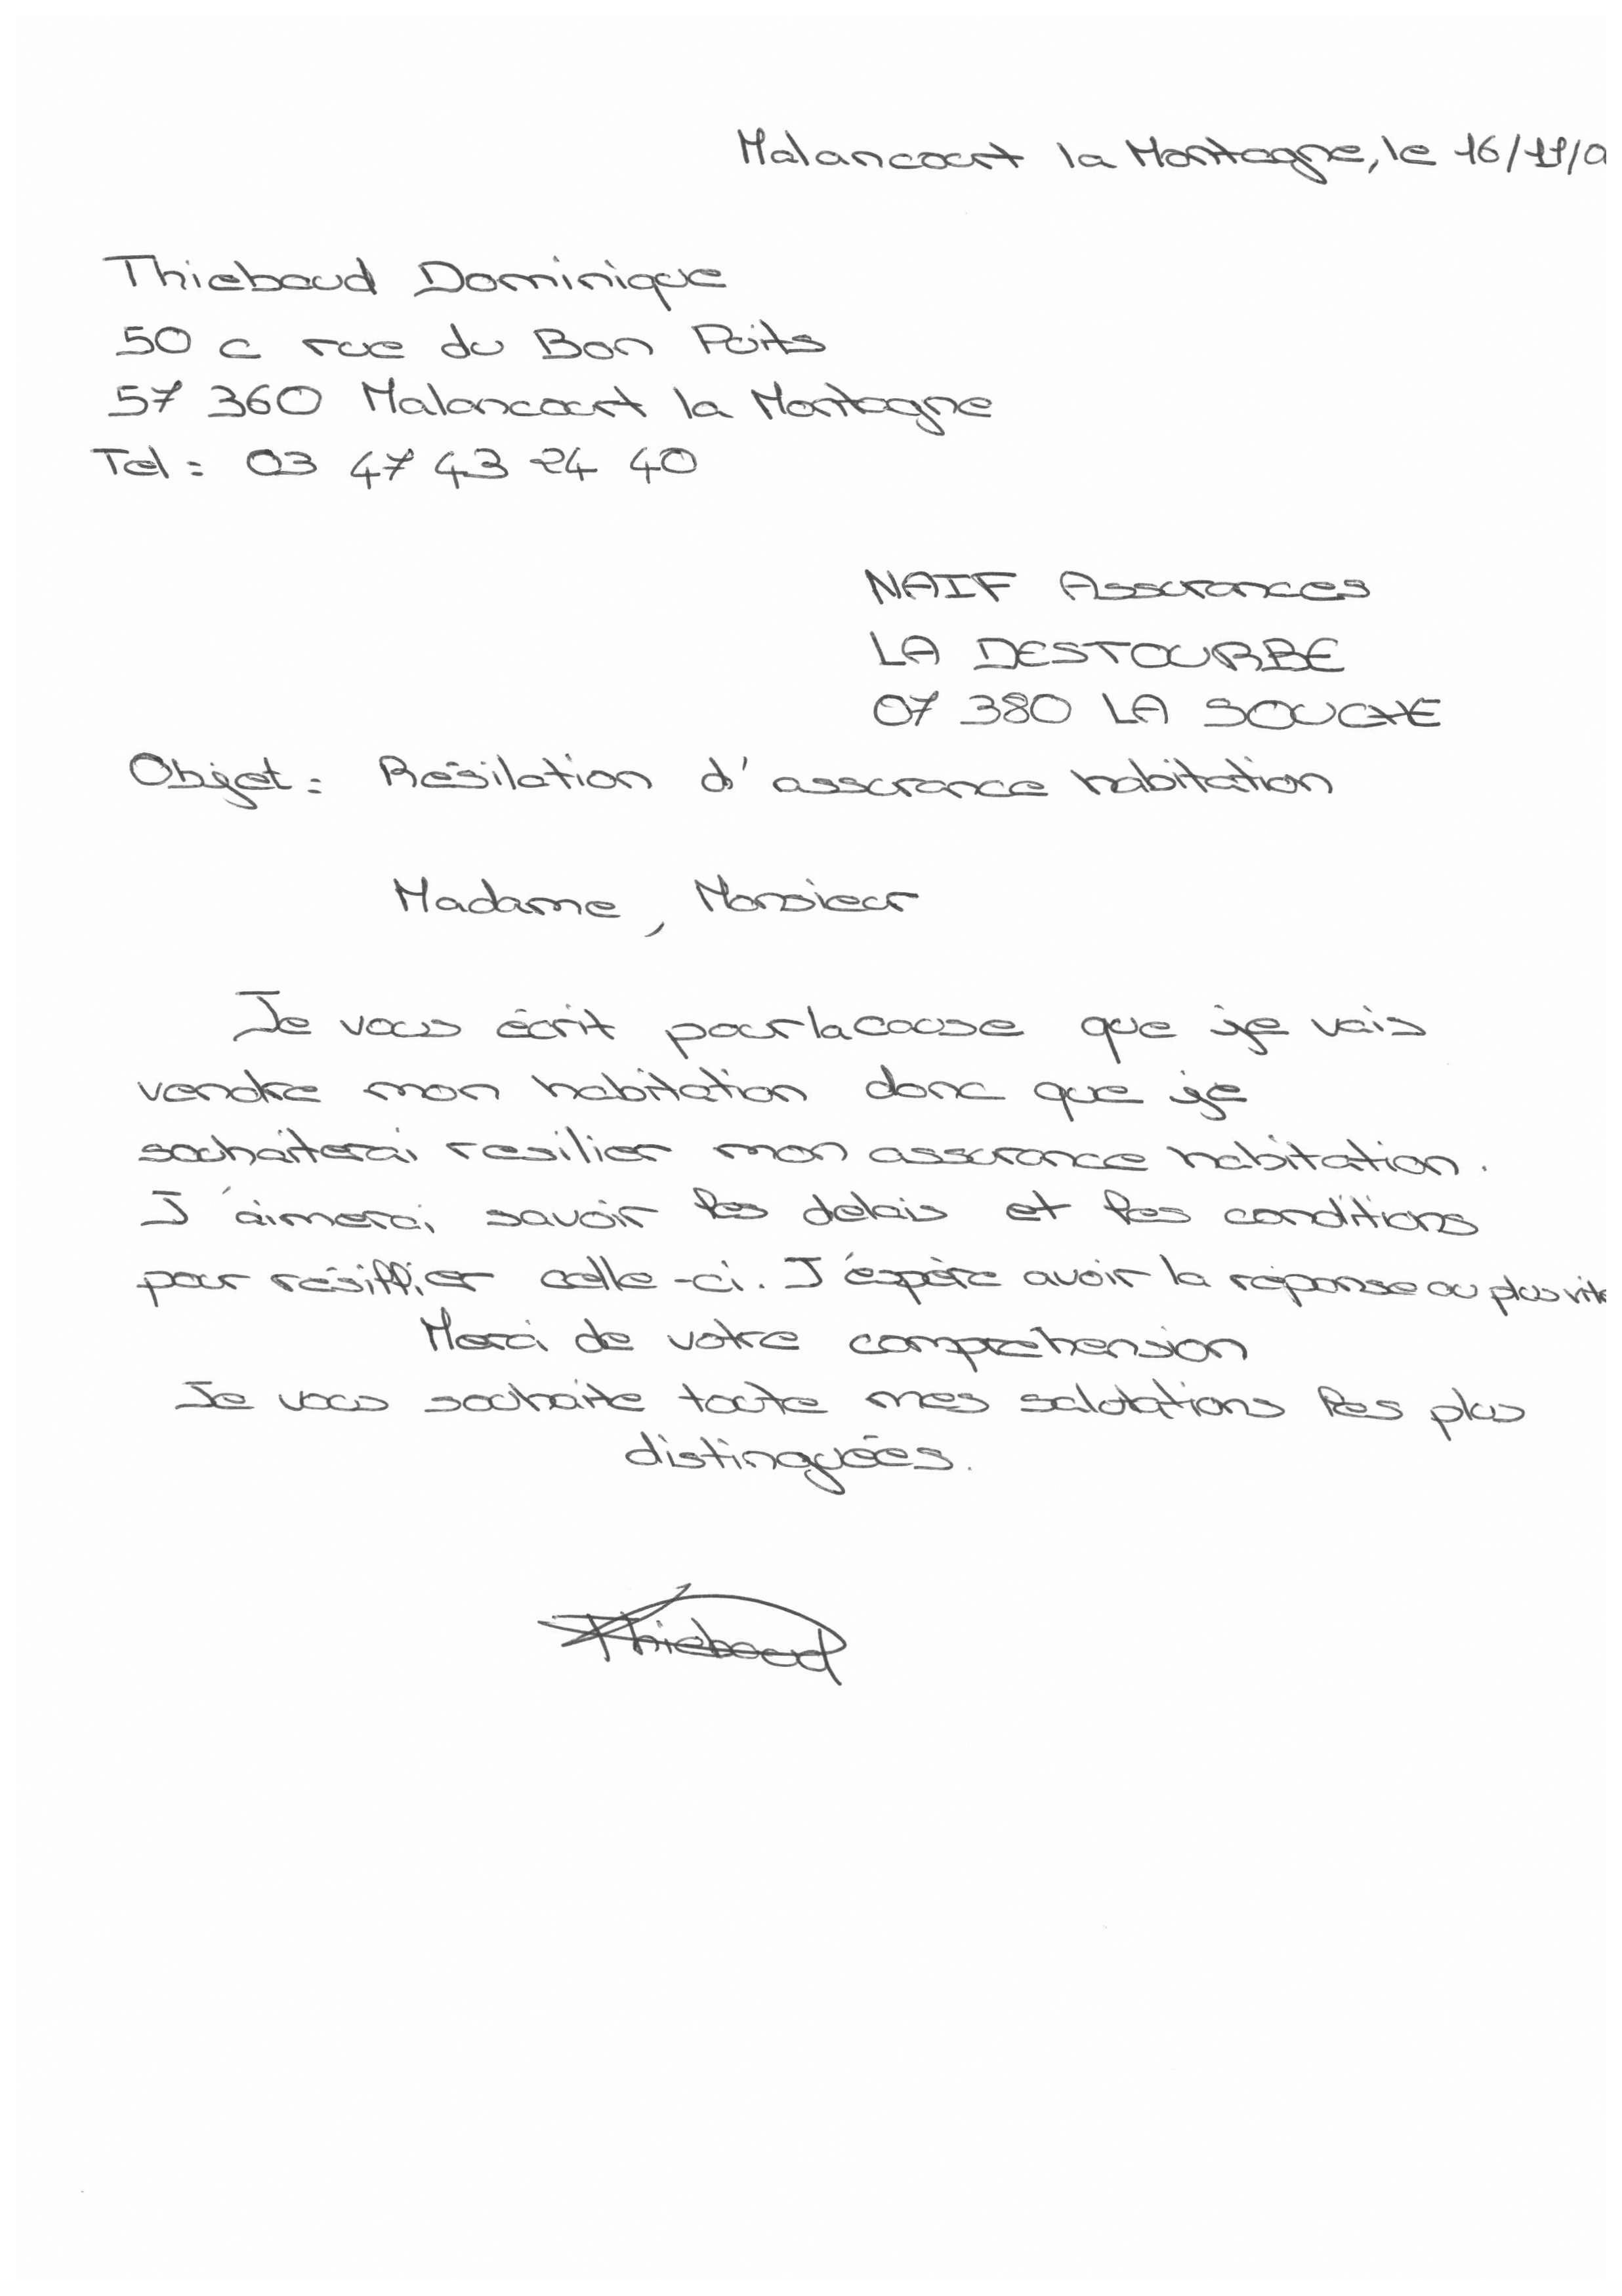 Malancourt la Montagne, le 16/11/0
Thiebaud Dominique
50 c rue du Bon Puits
57 360 Malancourt la Montagne
Tel : 03 47 43 24 40
NAIF Assurances
LA DESTOURBE
07 380 LA SOUCHE
Objet : Résilation d'assurance habitation
Madame, Monsieur
Je vous écrit pour la cause que je vais
vendre mon habitation donc que je
souhaiterai resilier mon assurance habitation.
J'aimerai savoir les delais et les conditions
pour résillier celle-ci. J'éspère avoir la reponse au plus vite
Merci de votre comprehension
Je vous souhaite toute mes salutations les plus
distinguées.
Thiebaud